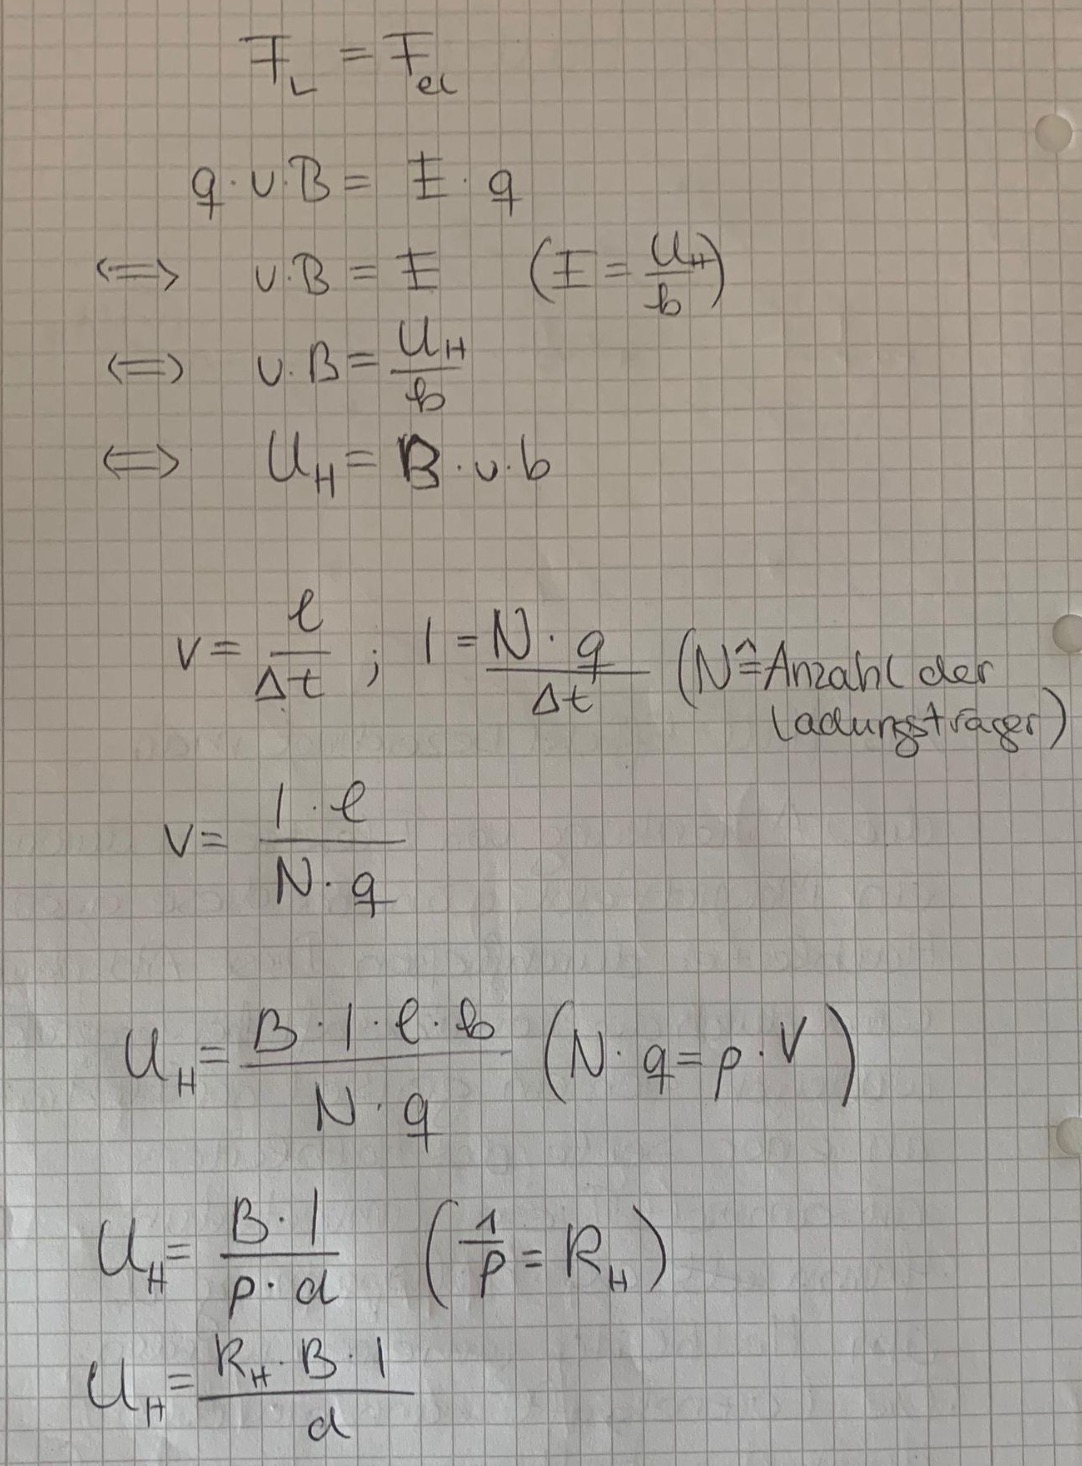 F_L = F_el
q · v · B = E · q
<=> v · B = E (E = U_H/b)
<=> v · B = U_H/b
<=> U_H = B · v · b
v = l/Δt ; I = N · q/Δt (N ≙ Anzahl der
Ladungsträger)
v = I · l/N · q
U_H = B · I · l · b/N · q (N · q = ρ · V)
U_H = B · I/ρ · d (1/ρ = R_H)
U_H = R_H · B · I/d